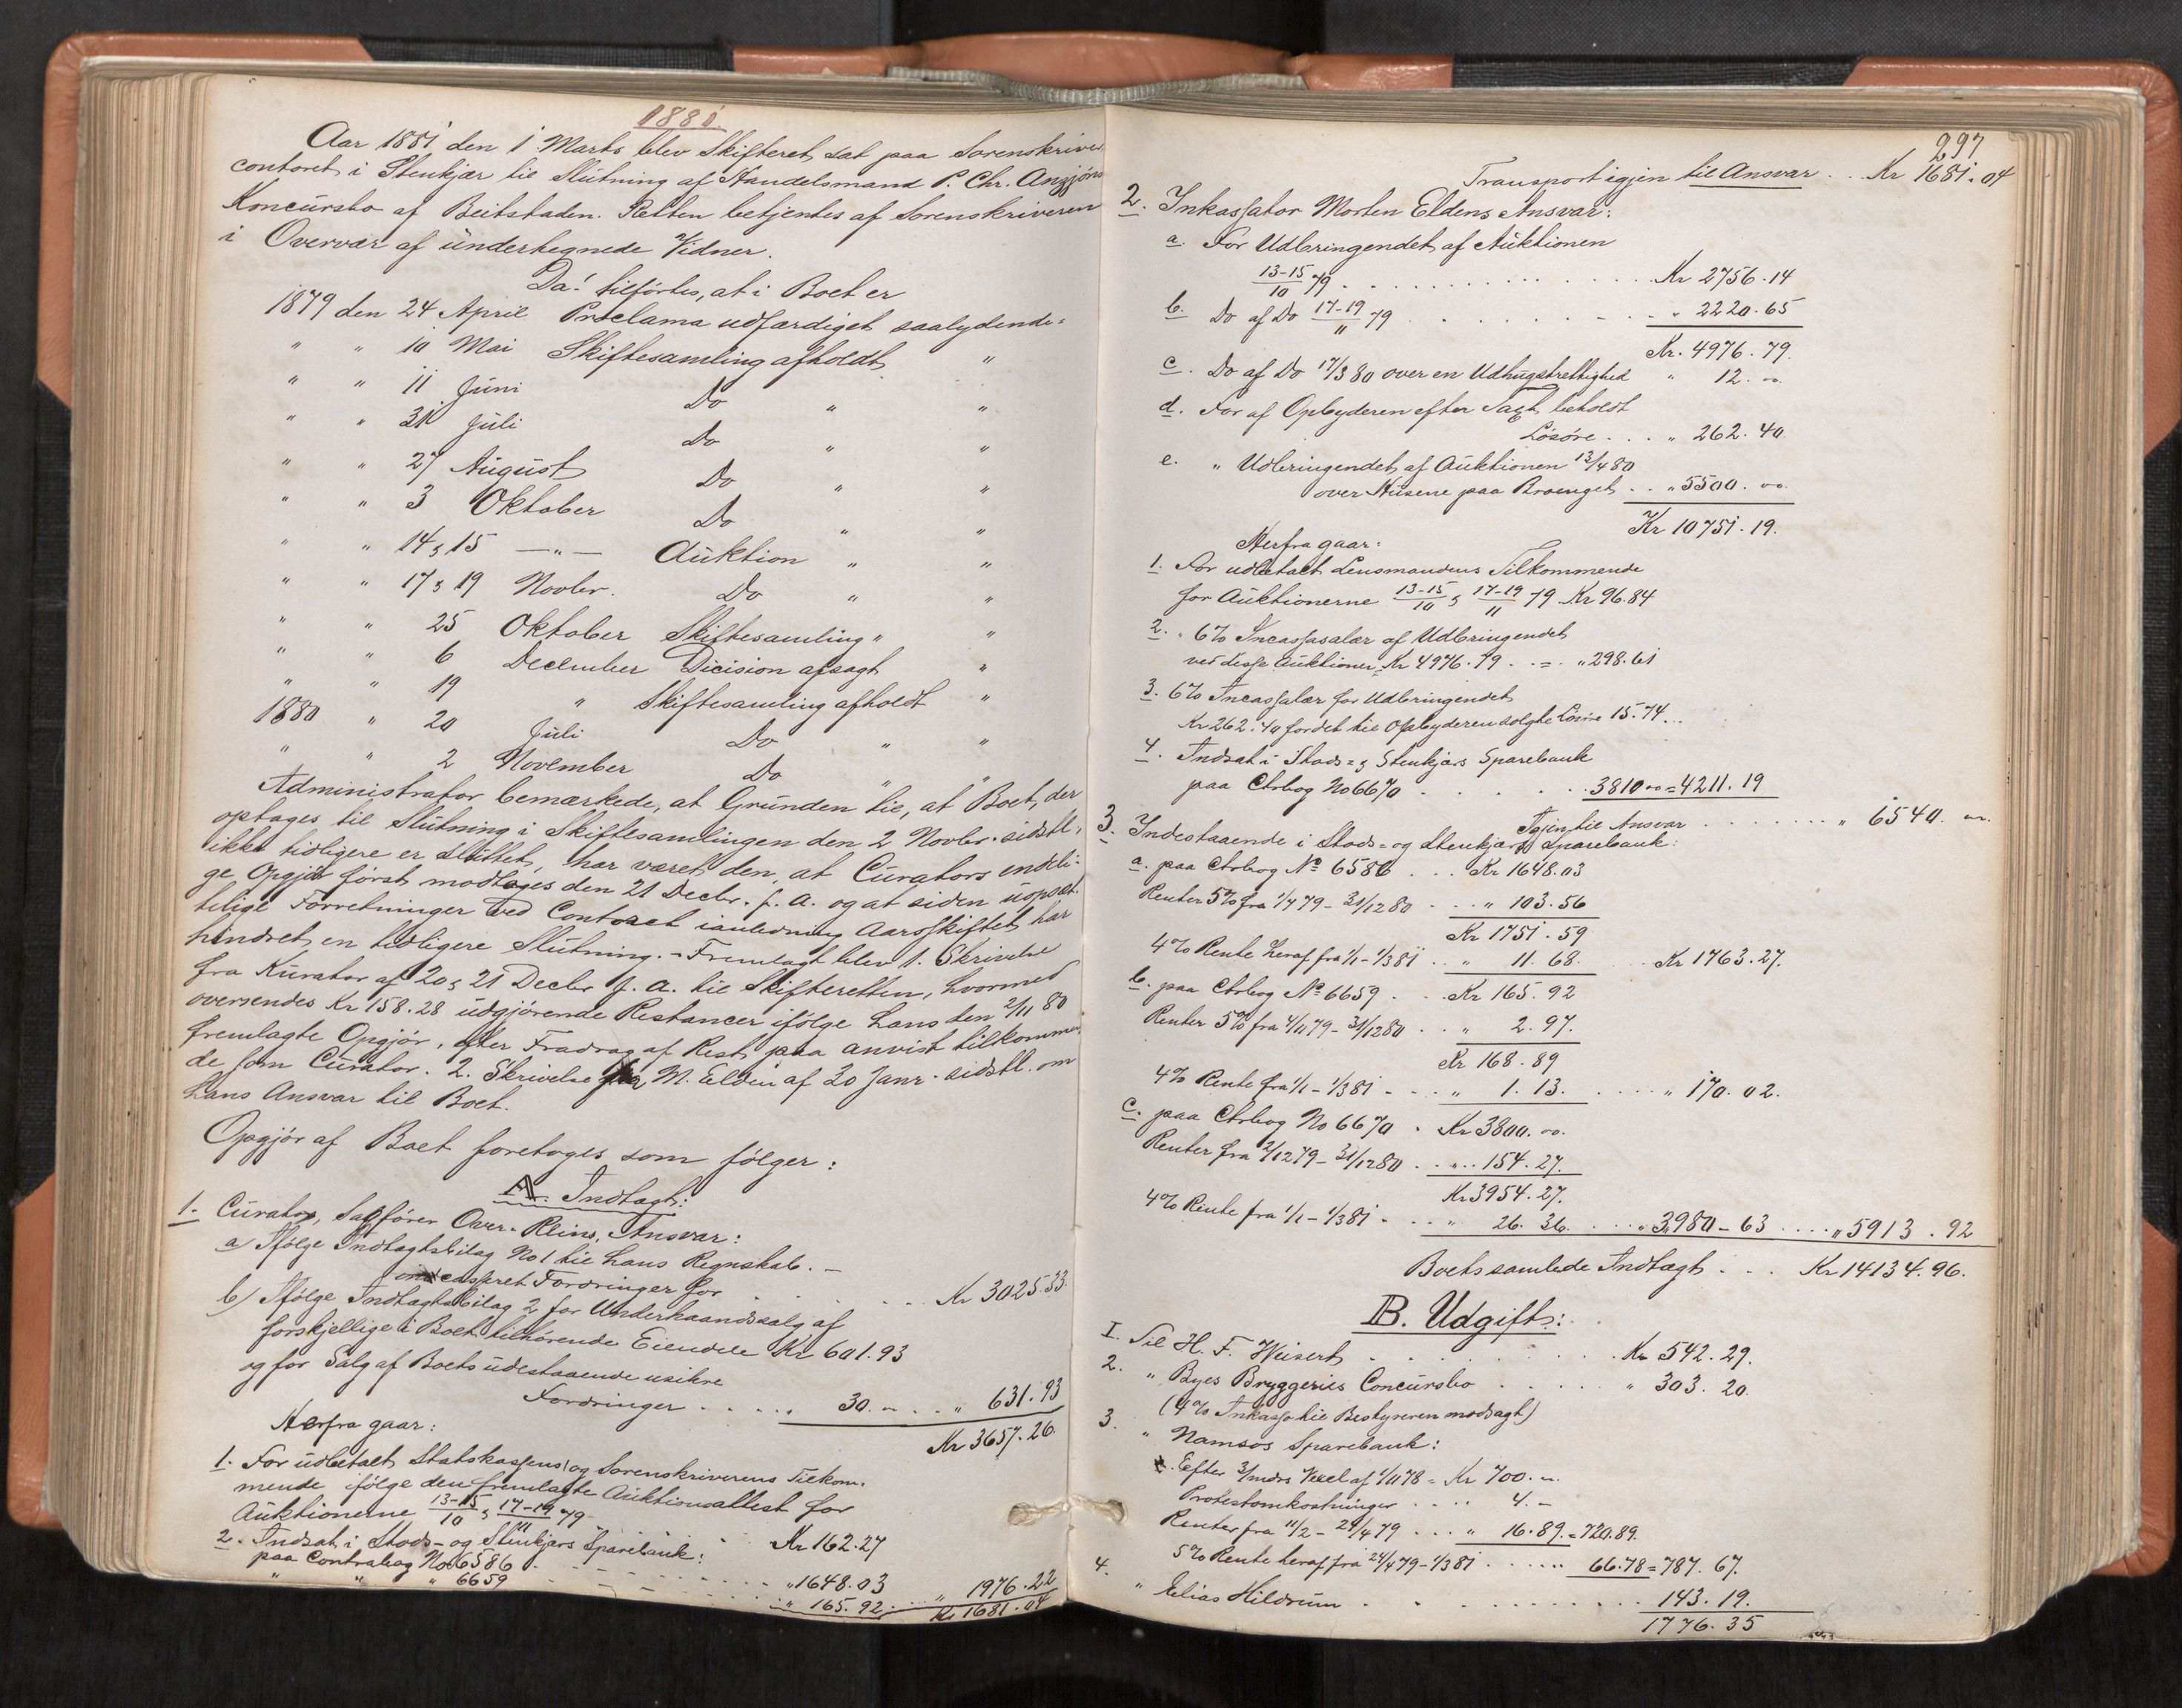 1881.
Aar 1881 den 1 Marts blev Skifteret sat paa Sorenskriver
contoret i Stenkjær til Slutning af Handelsmand P. Chr.
Koncursbo af Beitstaden. Retten betjentes af Sorenskriveren
i Overvær af undertegnede Vidner.
Da! tilförtes, at i Boet er
1879 den 24 April Proclama udfærdiget saalydende:
" " 10 Mai Skiftesamling afholdt "
" " 11 Juni Do " "
" " 31 Juli Do " "
" " 27 August Do " "
" " 3 Oktober Do " "
" " 14 & 15 —"— Auktion " "
" " 17 & 19 Novbr. Do " "
" " 25 Oktober Skiftesamling " "
" " 6 December Dicision afsagt "
" " 19 " Skiftesamling afholdt "
1880 " 20 Juli Do " "
" " 2 November Do " "
Administrator bemærkede, at Grunden til, at Boet, der
optages til Slutning i Skiftesamlingen den 2 Novbr. sidstl,
ikke tidligere er sluttet, har været den, at Curators endeli-
ge Opgjör först modtages den 21 Decbr. f. A. og at siden uopsæt-
telige Forretninger ved Contoret ianledning Aarsskiftet har
hindret en tidligere Slutning. - Fremlagt blev 1. Skrivelse
fra Kurator af 20 & 21 Decbr f. A. til Skifteretten, hvormed
oversendes Kr 158.28 udgjörende Restancer ifölge hans den 2/11 80
fremlagte Opgjör, efter Fradrag af Rest paa anvist tilkommen
de som Curator. 2. Skrivelse fra M. Elden af 30 Janr. sidstl. om
hans Ansvar til Boet.
Opgjör af Boet foretages som fölger:
A. Indtægt:
1. Curator, Sagförer Over-Reins, Ansvar:
a) Ifölge Indtægtsbilag No 1 til hans Regnskab. -
indcasseret Fordringer for . . . Kr 3025.33.
b) Ifölge Indtægtsbilag 2 for Underhaandssalg af
forskjellige i Boet tilhörende Eiendele Kr 601.93
og for Salg af Boets udestaaende usikre
Fordringer . . . . . 30. - . . " 631.93
Kr 3657.26.
Herfra gaar:
1. For udbetalt Statskassens og Sorenskriverens Tilkom-
mende ifölge den fremlagte Auktionsattest for
Auktionerne 13-15/10 & 17-19/11 79 . . Kr 162.27
2. Indsat i Stods- og Stenkjærs Sparebank:
paa Contrabog No 6586 . . . . "1648.03
" " " 6659 . . . . " 165.92 . . . " 1976.22
Kr 1681.04
297
Transport igjen til Ansvar . . Kr 1681.04
2. Inkassator Morten Eldens Ansvar:
a. For Udbringendet af Auktionen
13-15/10 79 . . . . . Kr 2756.14
b. Do af Do 17-19/11 79 . . . . . " 2220.65
Kr. 4976.79.
c. Do af Do 17/3 80 over en Udhugstrettighed " 12. 00.
d. For af Opbyderen efter Taxt beholdt
Lösöre . . . " 262.40
e. " Udbringendet af Auktionen 13/4 80
over Husene paa Brænget . . " 5500. 00.
Kr 10751.19.
Herfra gaar:
1. For udbetalt Lensmandens Tilkommende
for Auktionerne 13-15/10 & 17-19/11 79 Kr 96.84
2. " 6% Incassasalær af Udbringendet
ved disse Auktioner Kr 4976.79 . . = " 298.61
3. 6% Incassalær for Udbringendet
Kr 262.40 for det til Opbyderen solgte Lösöre 15.74 . .
4. Indsat i Stods- & Stenkjærs Sparebank
paa Ctrbog No 6670 . . . . . 3810 00 = 4211.19
Igjen til Ansvar . . . . . . . " 6540. 00.
3. Indestaaende i Stods- og Stenkjærs Sparebank:
a. paa Ctrbog No 6586 . . . Kr 1648.03
Renter 5% fra 1/4 79 - 31/12 80 . . . " 103.56
Kr 1751.59
4% Rente heraf fra 1/1 - 1/3 81 . . " 11.68. . . Kr 1763.27.
b. paa Ctrbog No 6659 . . . Kr 165.92
Renter 5% fra 4/11 79 - 31/12 80 . . " 2.97.
Kr 168.89
4% Rente fra 1/1 - 1/3 81 - . . " 1.13. . . . . . " 170.02.
c. paa Ctrbog No 6670 . Kr 3800. 00.
Renter fra 2/12 79 - 31/12 80 . . " . . 154.27.
Kr 3954.27.
4% Rente fra 1/1 - 1/3 81 - . . " 26.36. . . . " 3980-63 . . . . " 5913.92
Boets samlede Indtægt . . . Kr 14134.96.
B. Udgift:
I. Til H. F. Weisert . . . . . . . Kr 542.29.
2. " Byes Bryggeries Concursbo . . . . . " 303.20.
(4% Inkasso til Bestyreren modsagt)
3. " Namsos Sparebank:
Efter 3/mdrs Vexel af 1/11 78 = Kr 700. 00.
Protestomkostninger . . . . " 4. -
Renter fra 11/2 - 24/4 79 . . . " 16.89. = 720.89.
5% Rente heraf fra 24/4 79 - 1/3 81 . . . . . . 66.78 = 787.67.
4. " Elias Hildrum . . . . . . . . . 143.19.
1776.35